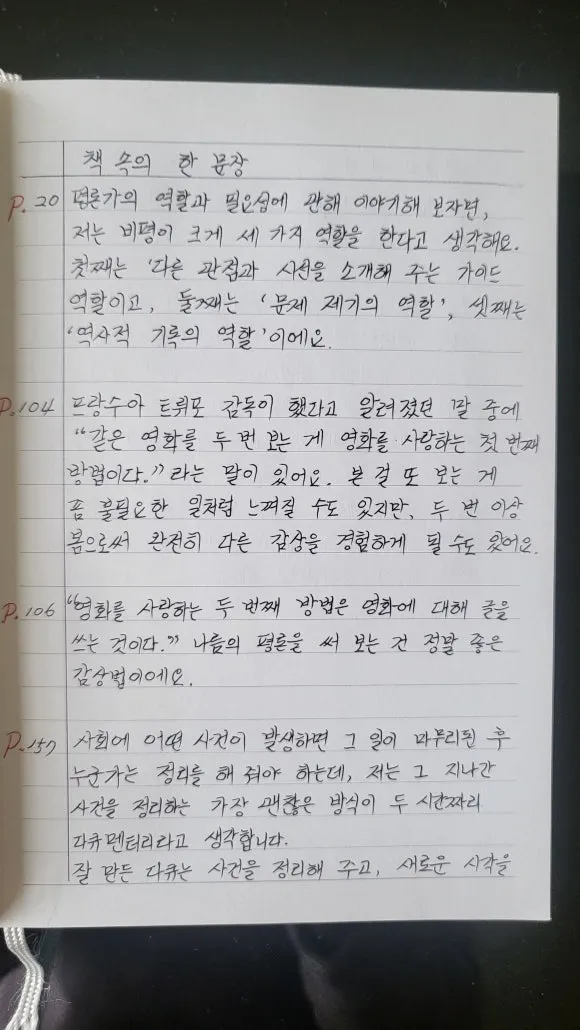 책 속의 한 문장
P.20 평론가의 역할과 필요성에 관해 이야기해 보자면,
저는 비평이 크게 세 가지 역할을 한다고 생각해요.
첫째는 '다른 관점과 시선을 소개해 주는 가이드
역할이고, 둘째는 '문제 제기의 역할', 셋째는
'역사적 기록의 역할'이에요.
P.104 프랑수아 트뤼포 감독이 했다고 알려졌던 말 중에
"같은 영화를 두 번 보는 게 영화를 사랑하는 첫 번째
방법이다."라는 말이 있어요. 본 걸 또 보는 게
좀 불필요한 일처럼 느껴질 수도 있지만, 두 번 이상
봄으로써 완전히 다른 감상을 경험하게 될 수도 있어요.
P.106 "영화를 사랑하는 두 번째 방법은 영화에 대해 글을
쓰는 것이다." 나름의 평론을 써 보는 건 정말 좋은
감상법이에요.
P.157 사회에 어떤 사건이 발생하면 그 일이 마무리된 후
누군가는 정리를 해 줘야 하는데, 저는 그 지나간
사건을 정리하는 가장 괜찮은 방식이 두 시간짜리
다큐멘터리라고 생각합니다.
잘 만든 다큐는 사건을 정리해 주고, 새로운 시각을